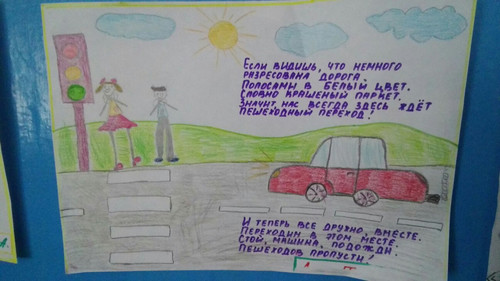 Если видишь, что немного
разресована дорога.
Полосами в белый цвет.
Словно крашеный паркет.
Значит нас всегда здесь ждёт
пешеходный переход!
И теперь все дружно, вместе.
Переходим в этом месте.
Стой, машина, подожди.
Пешеходов пропусти!